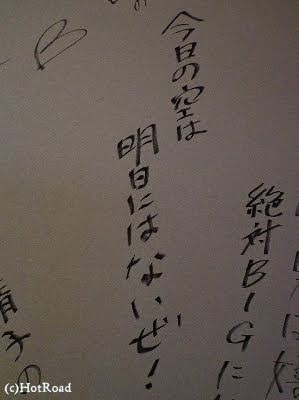 絶対BIGに
今日の空は
明日にはないぜ!
清子の
(c)HotRoad